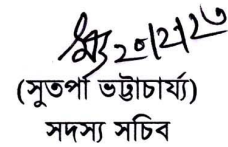 ২০/১২/২৩
(সুতপা ভট্টাচার্য্য)
সদস্য সচিব